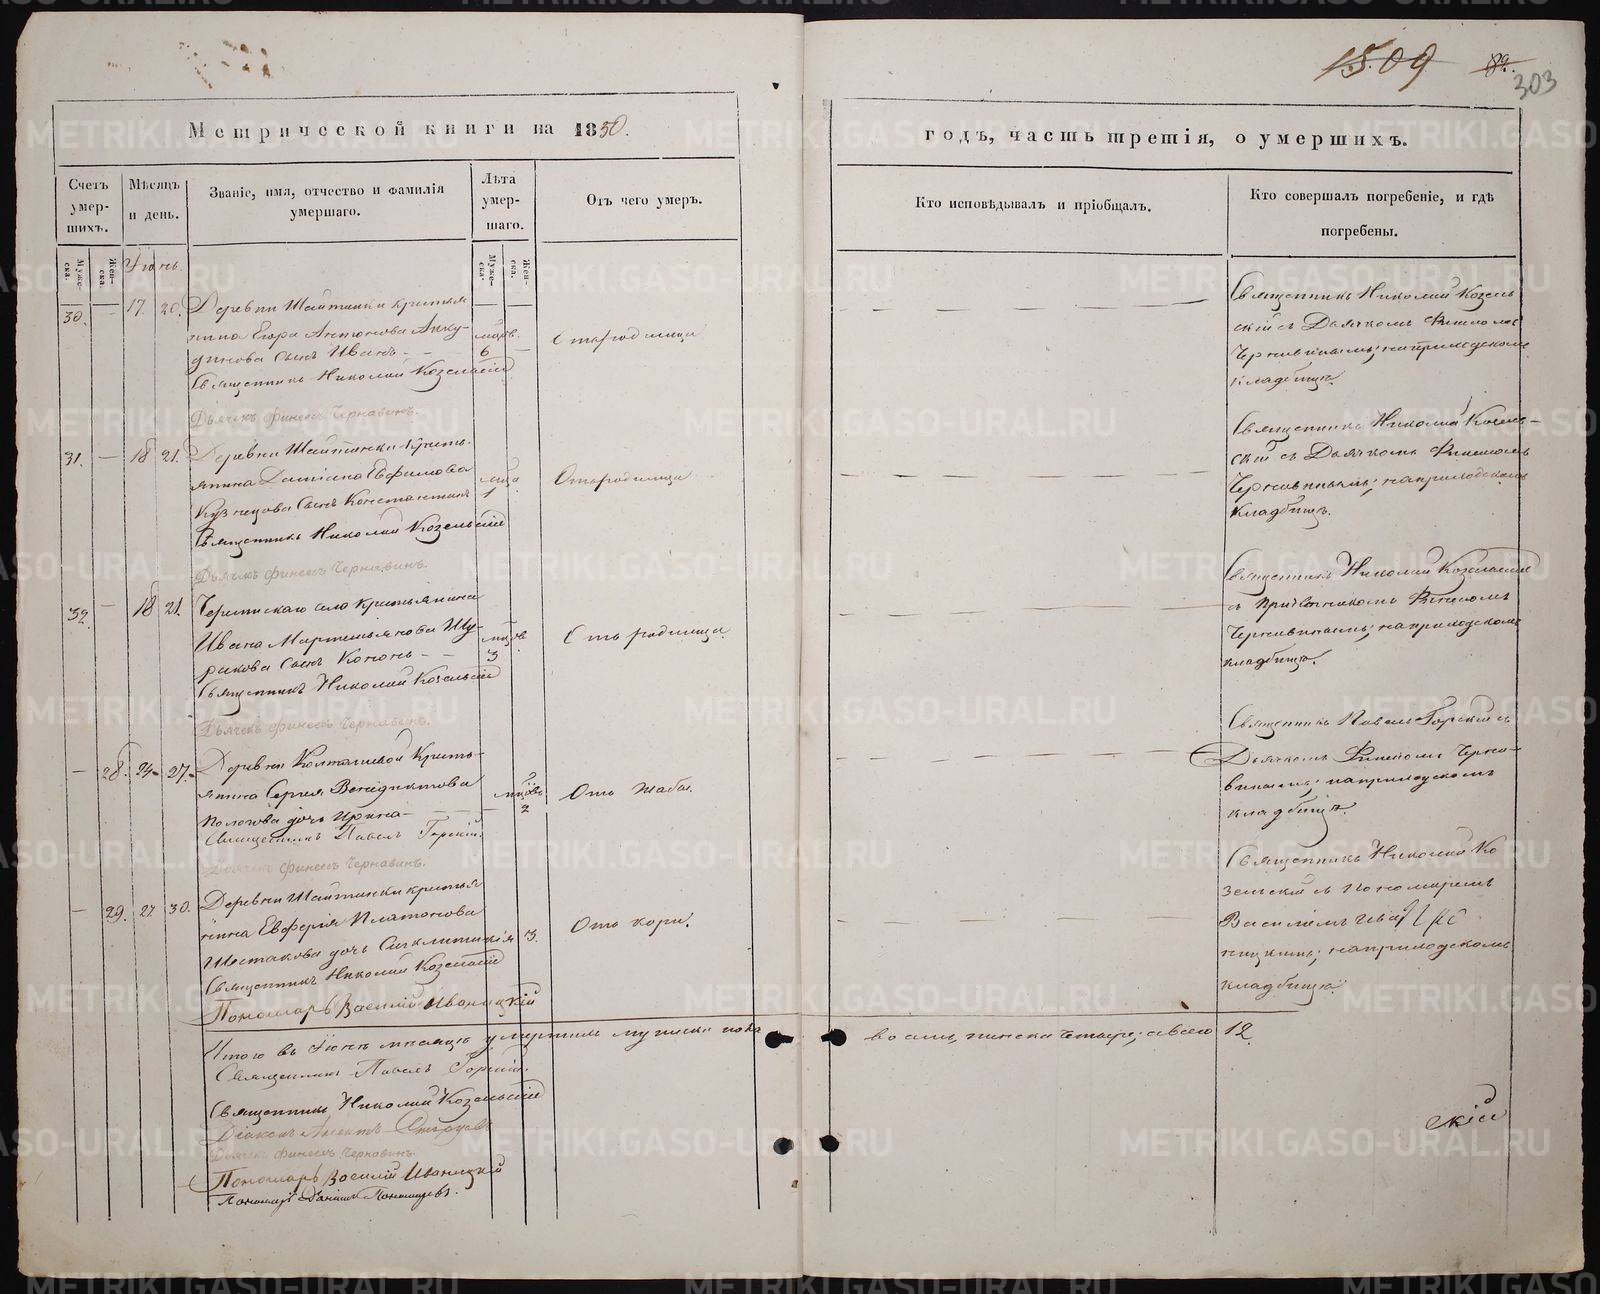 1509
89.
303
Метрической книги на 1850.
годъ, часть третія, о умершихъ.
Счетъ умер-шихъ.
Мѣсяцъ и день.
Званіе, имя, отчество и фамилія умершаго.
Лѣта умер-шаго.
Отъ чего умеръ.
Кто исповѣдывалъ и пріобщалъ.
Кто совершалъ погребеніе, и гдѣ погребены.
Муже-ска.
Жен-ска.
Іюнь.
Муже-ска.
Жен-ска.
30. — 17. 20.
Деревни Шайтанки крестья
нина Егора Антонова Анку-
динова сынъ Иванъ — —
Священникъ Николай Козельскій
Дьячекъ Финеесъ Чернавинъ.
6
Отъ родимца
Священникъ Николай Козель
скій съ Дьячкомъ Финеесомъ
Чернавинымъ; на приходскомъ
кладбищѣ.
31. — 18 21.
Деревни Шайтанки кресть-
янина Даміана Евфимова
Кузнецова сынъ Константинъ
Священникъ Николай Козельскій
Дьячекъ Финеесъ Чернавинъ.
1
Отъ родимца
Священникъ Николай Козель-
скій съ Дьячкомъ Финеесомъ
Чернавинымъ; на приходскомъ
кладбищѣ.
32. — 18 21.
села крестьянина
Ивана Мартемьянова Шу-
ракова сынъ Кононъ — —
Священникъ Николай Козельскій
Дьячекъ Финеесъ Чернавинъ.
3
Отъ родимца
Священникъ Николай Козельскій
съ Финеесомъ
Чернавинымъ; на приходскомъ
кладбищѣ.
— 28. 24. 27.
Деревни Колташевой кресть-
янина Сергія Венедиктова
дочь Ирина —
Священникъ Павелъ Горскій.
Дьячекъ Финеесъ Чернавинъ.
2
Отъ жабы.
Священникъ Павелъ Горскій съ
Дьячкомъ Финеесомъ Черна-
винымъ; на приходскомъ
кладбищѣ.
— 29. 27 30.
Деревни Шайтанки крестья
нина Платонова
Шестакова дочь Синклитикія
Священникъ Николай Козельскій
Пономарь Василій Иваницкій
3.
Отъ кори.
Священникъ Николай Ко
зельскій съ Пономаремъ
Василіемъ Ива
ницкимъ; на приходскомъ
кладбищѣ.
Итого въ Іюнѣ мѣсяцѣ умершихъ мужеска пола восемь, женска четыре; а всего 12.
Священникъ Павелъ Горскій.
Священникъ Николай Козельскій
Діаконъ
Дьячекъ Финеесъ Чернавинъ.
Пономарь Василій Иваницкій
Пономарь
скій
METRIKI.GASO-URAL.RU